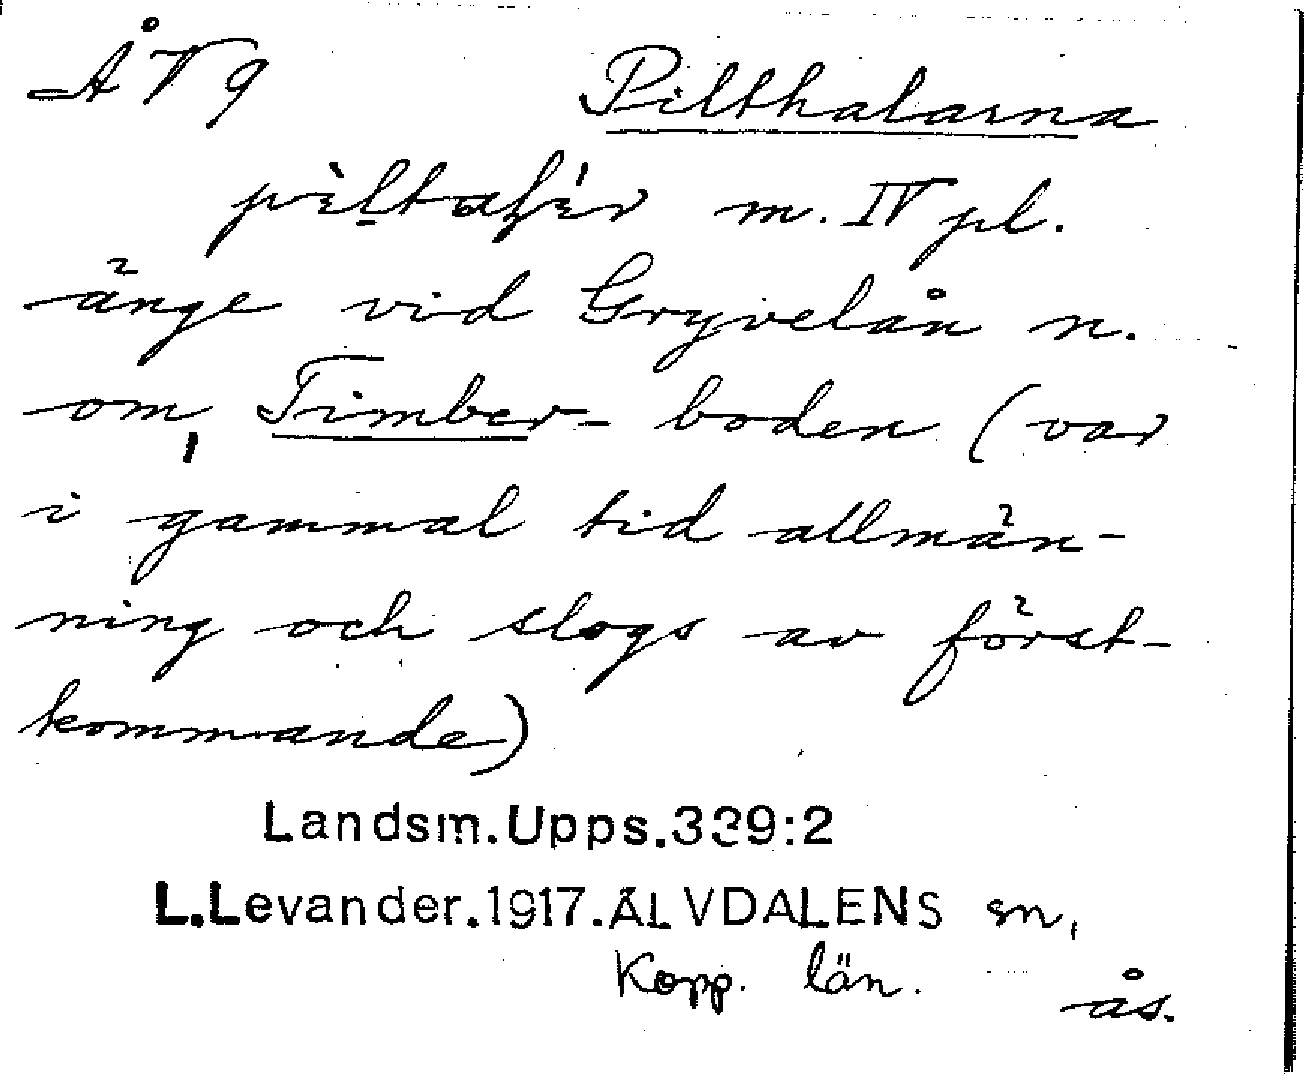 ÅV9 Pilthalarna
m. IV pl.
änge vid Gryvelån n.
om, Timber- boden (var
i gammal tid allmän-
ning och slogs av först-
kommande)
Landsm.Upps.339:2
L.Levander.1917.ÄLVDALENS sn,
Kopp. län. ås.